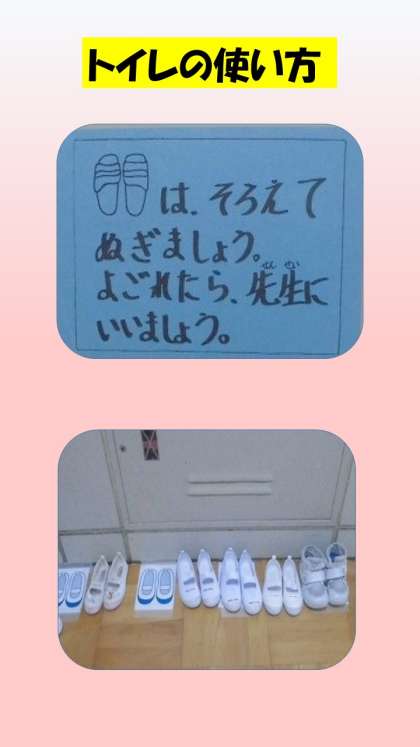 トイレの使い方
は、そろえて
ぬぎましょう。
よごれたら、先生に
せんせい
いいましょう。